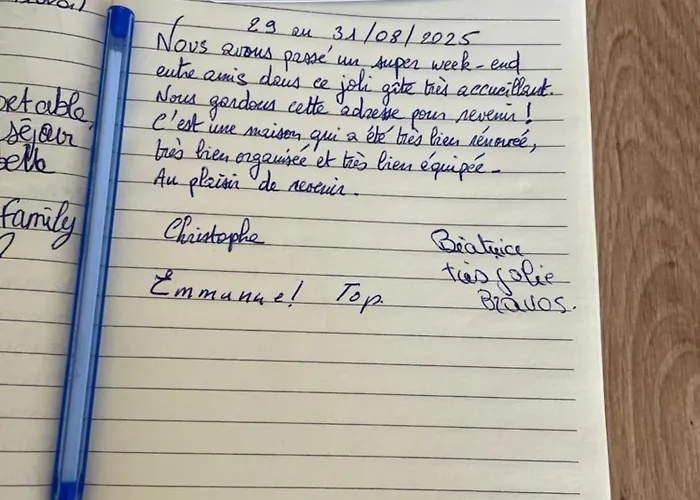 29 au 31/08/2025
Nous avons passé un super week-end
entre amis dans ce joli gîte très accueillant.
Nous gardons cette adresse pour revenir !
C'est une maison qui a été très bien rénovée,
très bien organisée et très bien équipée -
Au plaisir de revenir.
Christophe
Béatrice
très jolie
Bravos.
Emmanuel Top.
séjour
family